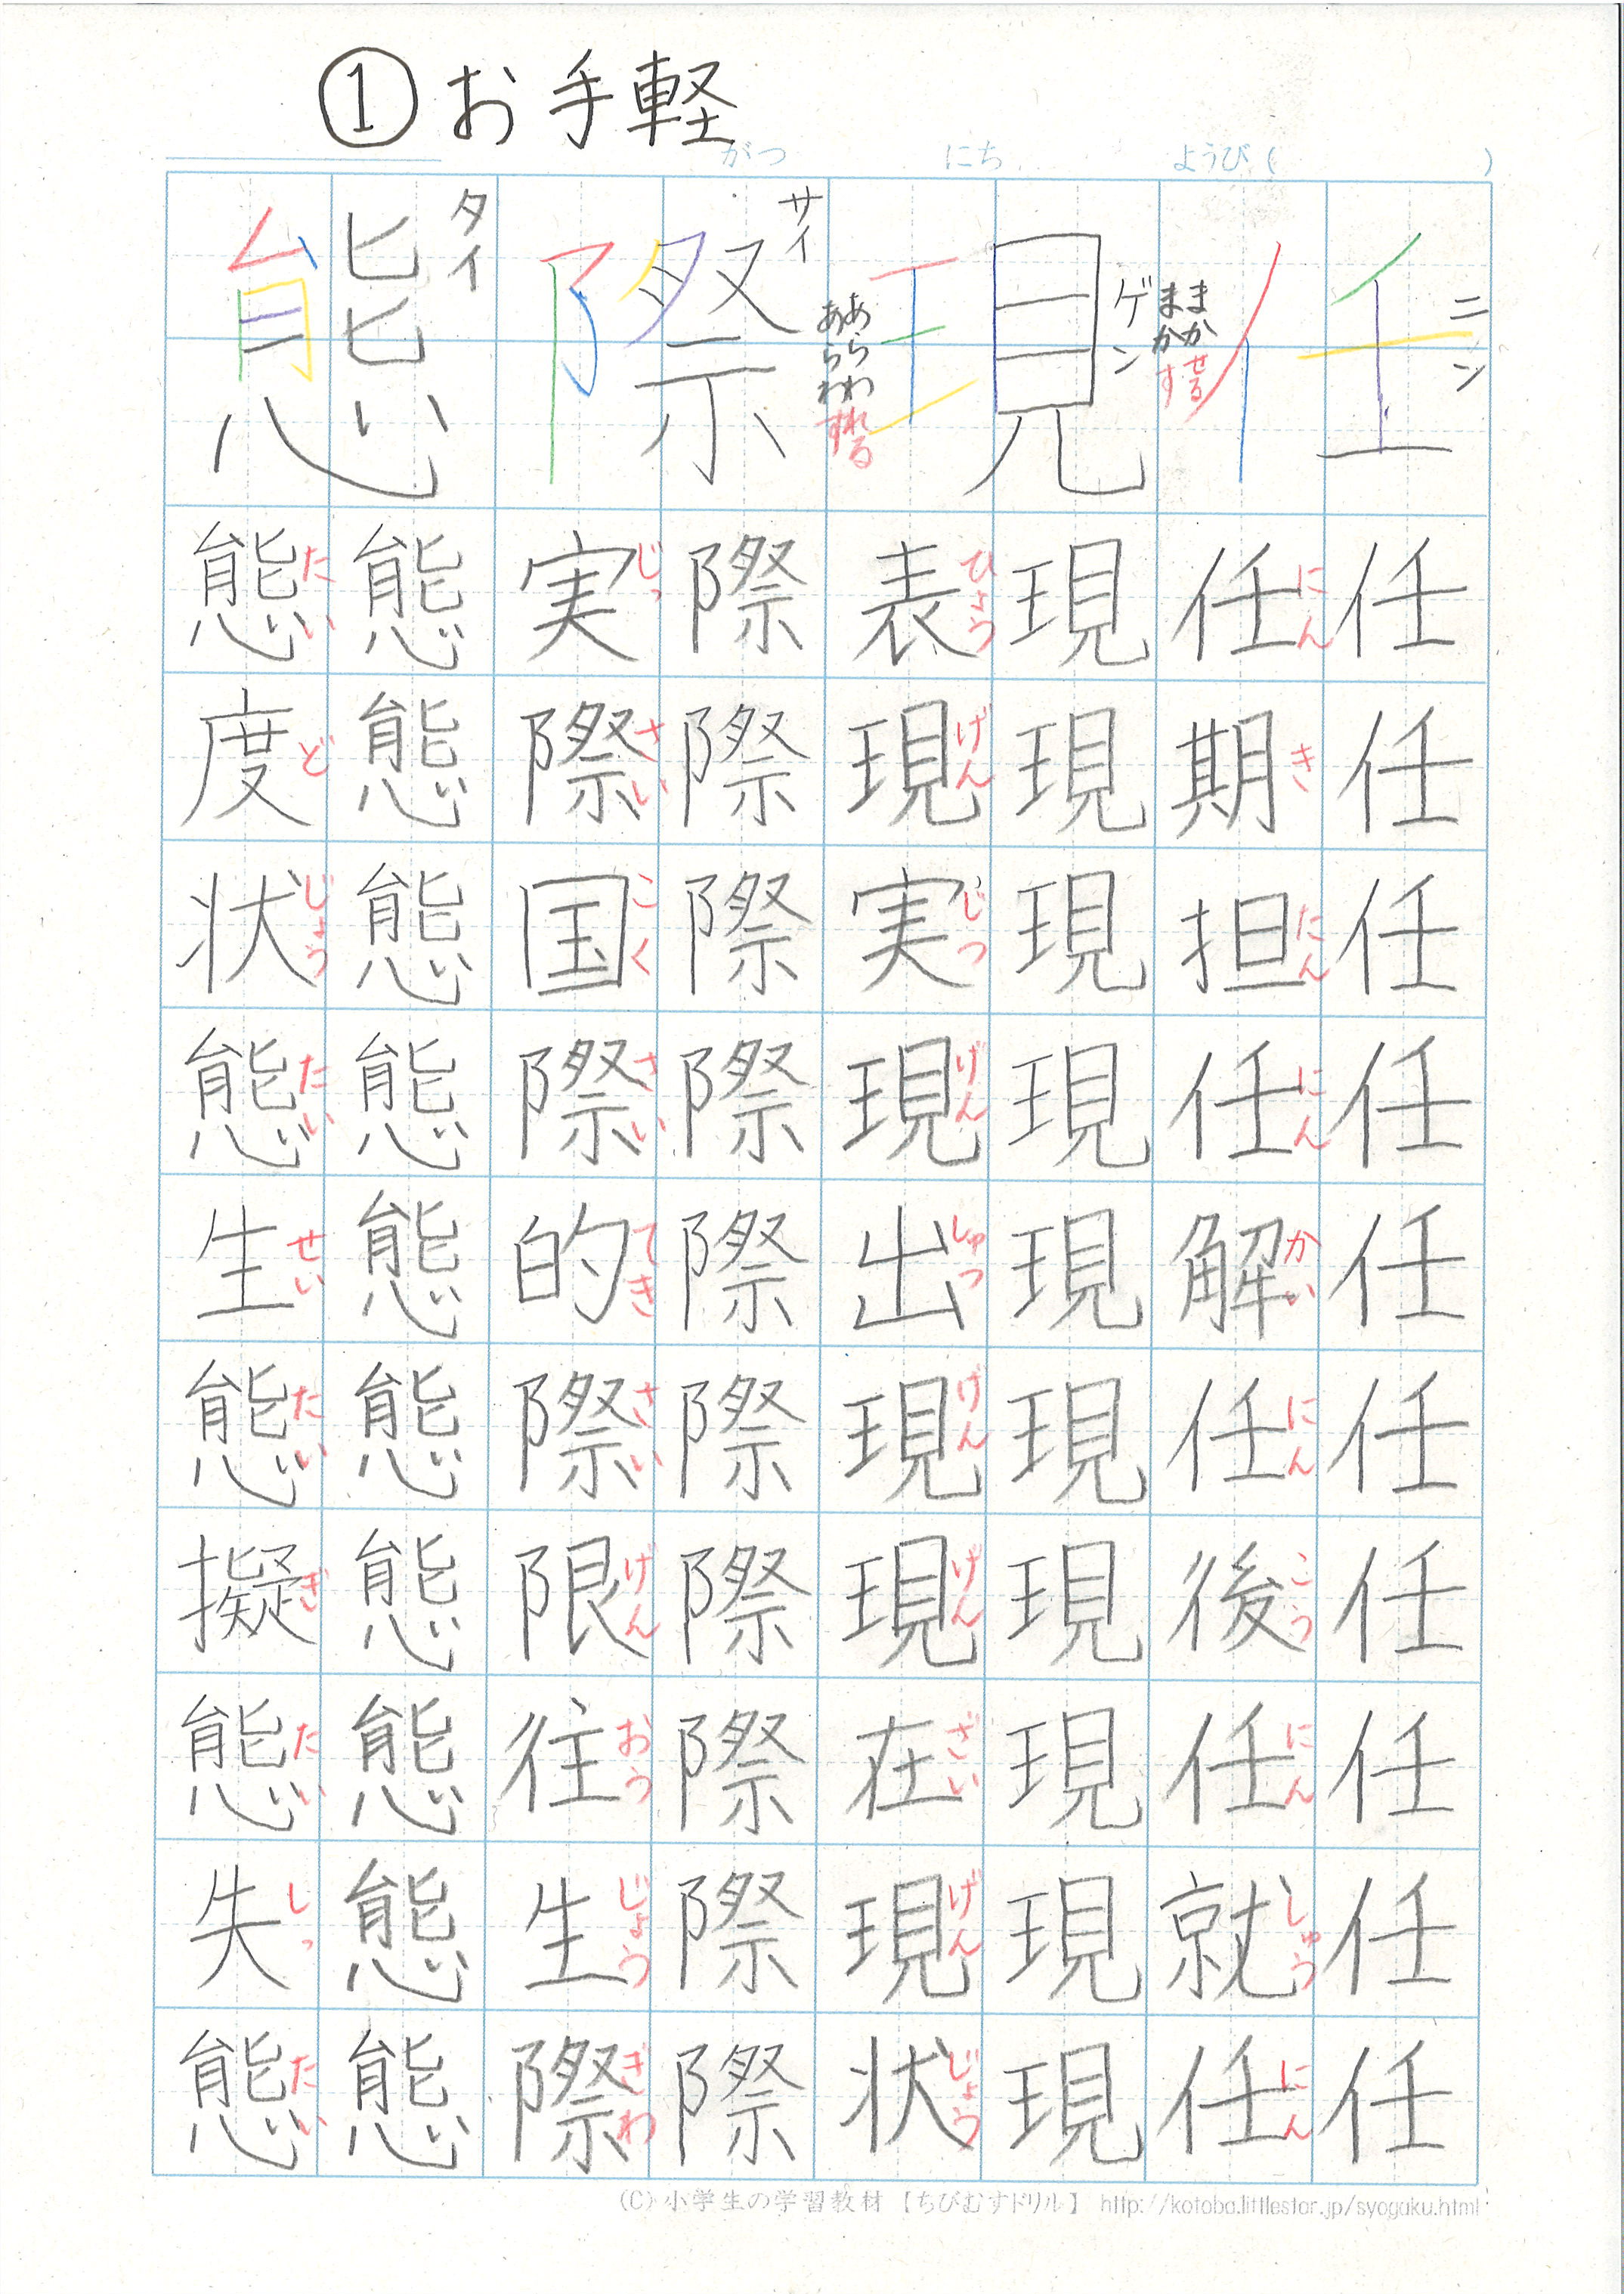 ①お手軽
がつ にち ようび( )
任
ニン
まかせる
まかす
任任任任任任任任任任
任期担任解任後任就任
にん き たん にん かい にん こう にん しゅう にん
現
ゲン
あらわれる
あらわす
現現現現現現現現現現
表現実現出現現在現状
ひょう げん じつ げん しゅつ げん げん ざい げん じょう
際
サイ
際際際際際際際際際際
実際国際的際限往生際
じっ さい こく さい てき さい げん おう じょう ぎわ
態
タイ
態態態態態態態態態態
態度状態生態擬態失態
たい ど じょう たい せい たい ぎ たい しっ たい
(C) 小学生の学習教材 【ちびむすドリル】 http://kotoba.littlestar.jp/syogaku.html